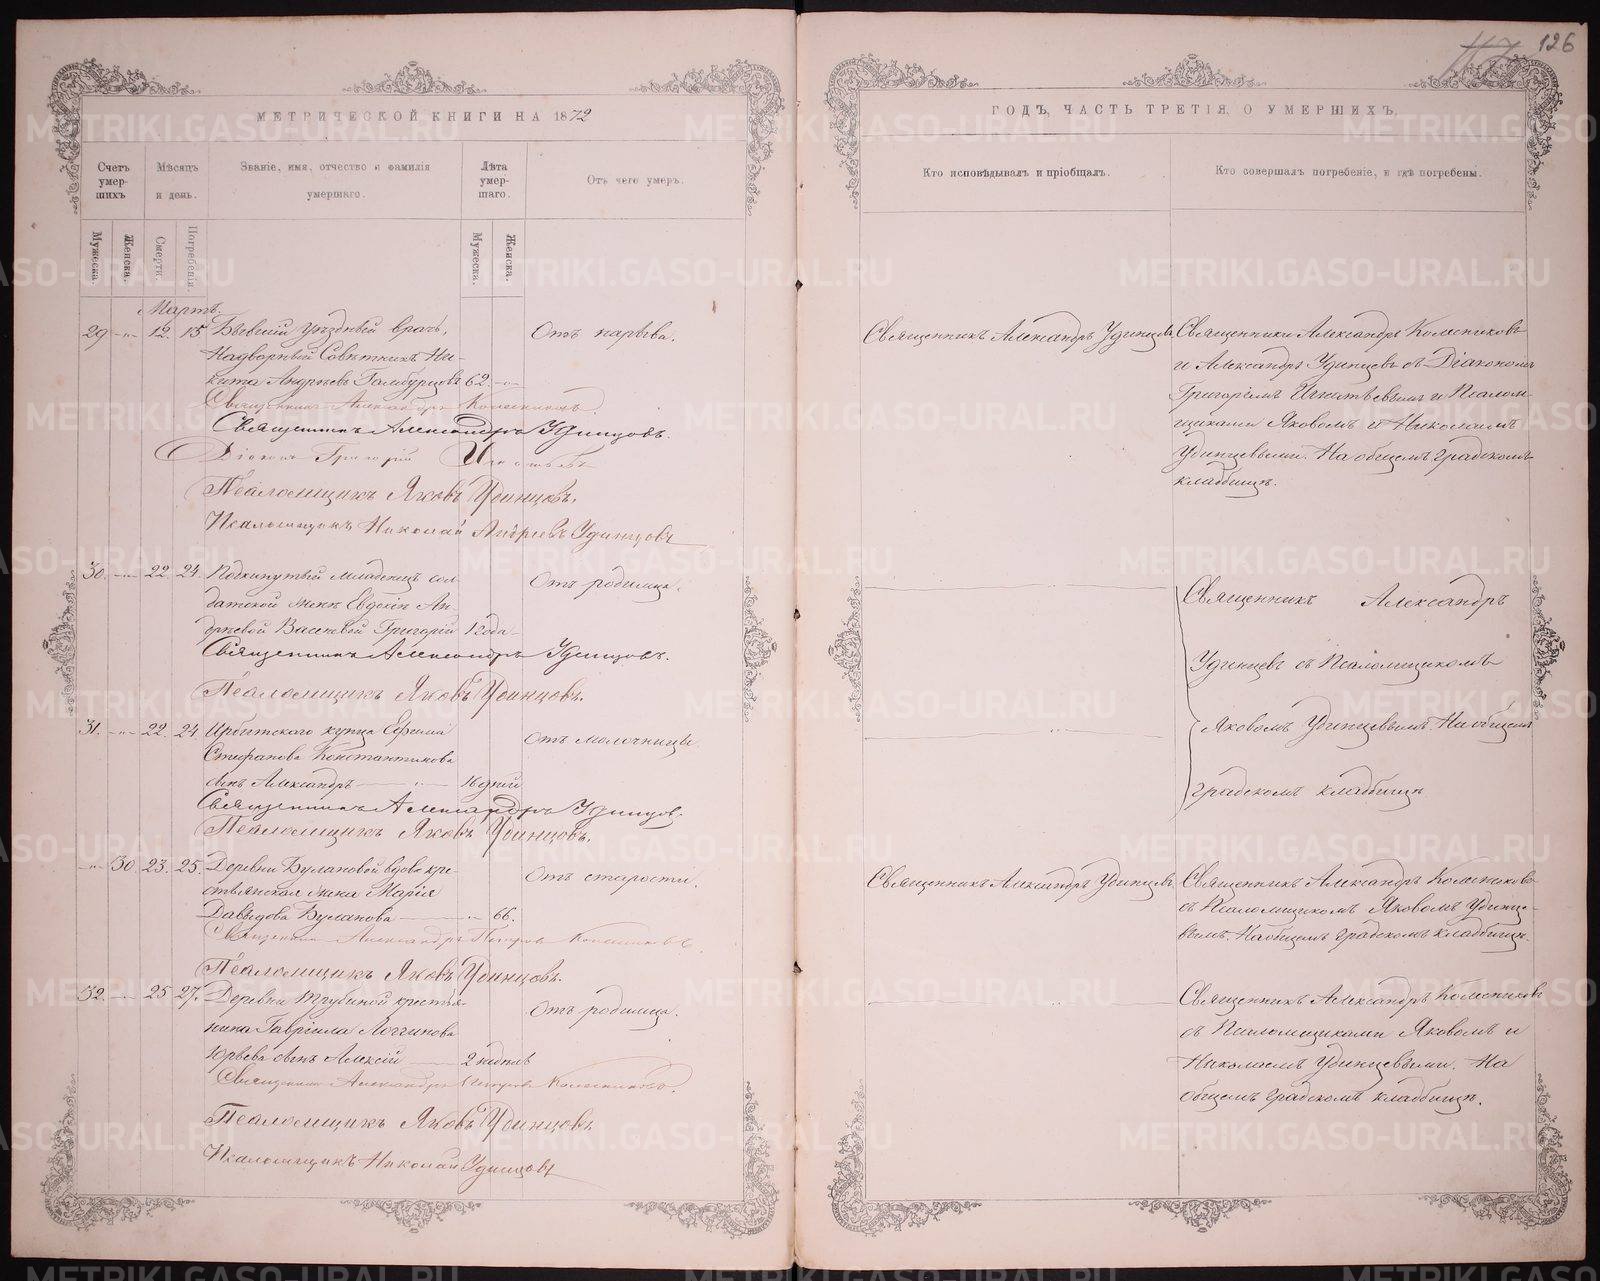 126
МЕТРИЧЕСКОЙ КНИГИ НА 1872
ГОДЪ, ЧАСТЬ ТРЕТІЯ, О УМЕРШИХЪ.
Счетъ умер-шихъ.
Мѣсяцъ и день.
Званіе, имя, отчество и фамилія
умершаго.
Лѣта умер-шаго.
Отъ чего умеръ.
Кто исповѣдывалъ и пріобщалъ.
Кто совершалъ погребеніе, и гдѣ погребены.
Мужеска.
Женска.
Смерти.
Погребенія
Мужеска.
Женска.
Мартъ.
29 -"- 12. 15 Бывшій уѣздный врачъ,
Надворный Совѣтникъ Ни-
кита Андреевъ Гамбурцовъ 62. -"-
Отъ нарыва.
Священникъ Александръ Удинцевъ
Священники Александръ Колесниковъ
и Александръ Удинцевъ съ Діакономъ
Григоріемъ Игнатьевымъ и Псалом-
щиками Яковомъ и Николаемъ
Удинцевыми. На общемъ градскомъ
кладбищѣ.
Священникъ Александръ Колесниковъ.
Священникъ Александръ Удинцовъ.
Діаконъ Григорій Игнатьевъ
Псаломщикъ Яковъ Удинцовъ.
Псаломщикъ Николай Андреевъ Удинцовъ
30. -"- 22. 24. Подкинутый младенецъ сол-
датской женѣ Евдокіи Ан-
дреевой Григорій 1 года -
Отъ родимца.
Священникъ Александръ
Удинцевъ съ Псаломщикомъ
Яковомъ Удинцевымъ. На общемъ
градскомъ кладбищѣ
Священникъ Александръ Удинцовъ.
Псаломщикъ Яковъ Удинцовъ.
31. -"- 22. 24. Ирбитскаго купца Ефима
Стефанова Константинова
сынъ Александръ 16 дней
Отъ молочницы
Священникъ Александръ Удинцовъ.
Псаломщикъ Яковъ Удинцовъ.
-"- 30. 23. 25. Деревни Булановой вдова кре-
стьянская жена Марія
Давыдова Буланова -"- 66.
Отъ старости.
Священникъ Александръ Удинцевъ
Священникъ Александръ Колесниковъ
съ Псаломщикомъ Яковомъ Удинце-
вымъ. На общемъ градскомъ кладбищѣ.
Священникъ Александръ Петровъ Колесниковъ
Псаломщикъ Яковъ Удинцовъ.
32. -"- 25 27. Деревни Трубиной крестья-
нина Гавріила Логгинова
Юрьева сынъ Алексій 2 недѣль
Отъ родимца.
Священникъ Александръ Колесниковъ
съ Псаломщиками Яковомъ и
Николаемъ Удинцевыми. На
общемъ градскомъ кладбищѣ.
Священникъ Александръ Петровъ Колесниковъ.
Псаломщикъ Яковъ Удинцовъ
Псаломщикъ Николай Удинцовъ
METRIKI.GASO-URAL.RU